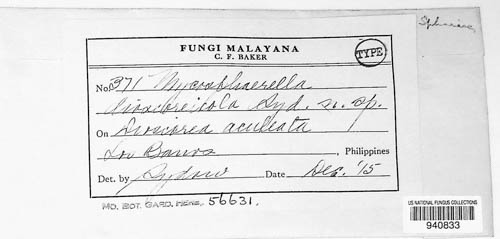 Sphaeriac
FUNGI MALAYANA
C. F. BAKER
TYPE
No. 371 Mycosphaerella
dioscoreicola Syd. n. sp.
On Dioscorea aculeata
Los Banos, Philippines
Det. by Sydow Date Dec. '15
MO. BOT. GARD. HERB. 56631.
US NATIONAL FUNGUS COLLECTIONS
940833